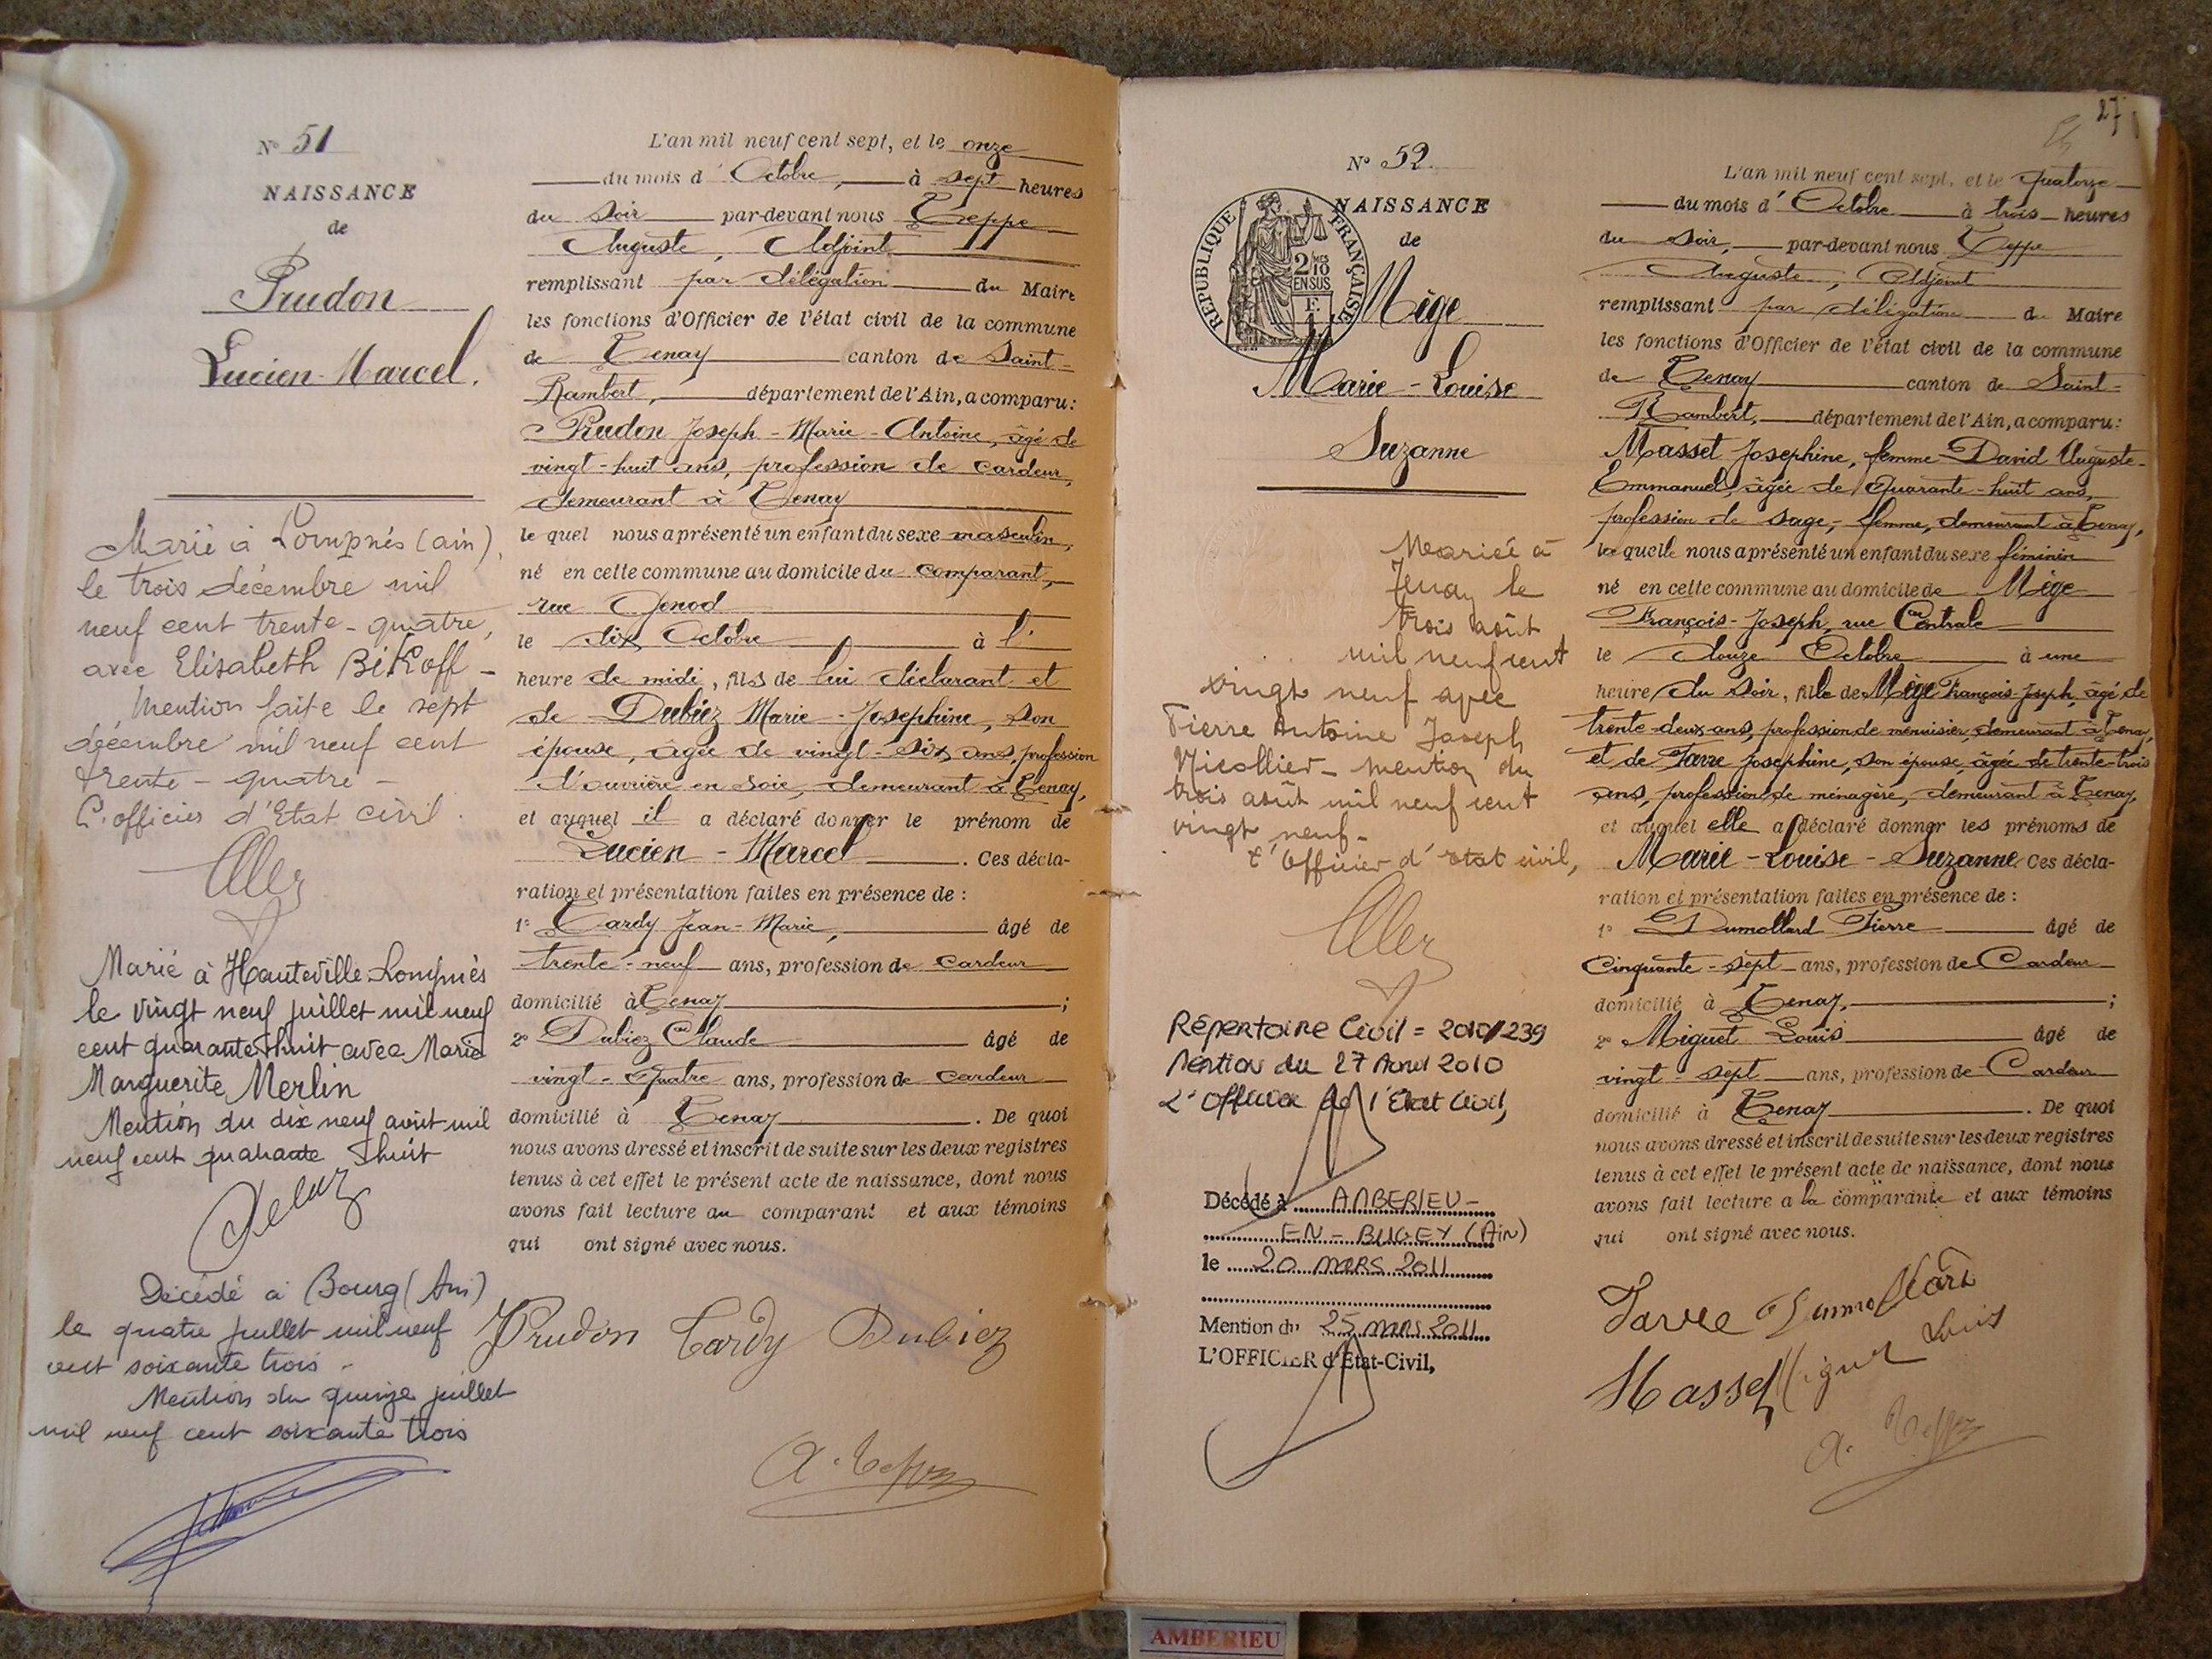 N° 51
NAISSANCE
de
Prudon
Lucien-Marcel.
Marié à Lompnès (ain),
le trois décembre mil
neuf cent trente-quatre,
avec Elisabeth Bikoff -
Mention faite le sept
décembre mil neuf cent
trente - quatre -
L'officier d'Etat civil.
Marié à Hauteville-Lompnès
le vingt neuf juillet mil neuf
cent quarante huit avec Marie
Marguerite Merlin
Mention du dix neuf août mil
neuf cent quarante huit
Décédé à Bourg (Ain)
le quatre juillet mil neuf
cent soixante trois -
Mention du quinze juillet
mil neuf cent soixante trois
L'an mil neuf cent sept, et le onze
du mois d'Octobre, à sept heures
du Soir par-devant nous Teppe
Auguste, Adjoint
remplissant par délégation du Maire
les fonctions d'Officier de l'état civil de la commune
de Tenay canton de Saint-
Rambert, département de l'Ain, a comparu:
Prudon Joseph-Marie-Antoine, âgé de
vingt-huit ans, profession de cardeur,
demeurant à Tenay
le quel nous a présenté un enfant du sexe masculin,
né en cette commune au domicile du comparant,
rue Genod
le dix Octobre à l'
heure de midi, fils de lui déclarant et
de Dubiez Marie-Josephine, son
épouse, âgée de vingt-six ans, profession
d'ouvrière en soie, demeurant à Tenay,
et auquel il a déclaré donner le prénom de
Lucien-Marcel. Ces décla-
ration et présentation faites en présence de :
1° Tardy Jean-Marie, âgé de
trente-neuf ans, profession de cardeur
domicilié à Tenay ;
2° Dubiez Claude âgé de
vingt-quatre ans, profession de cardeur
domicilié à Tenay. De quoi
nous avons dressé et inscrit de suite sur les deux registres
tenus à cet effet le présent acte de naissance, dont nous
avons fait lecture au comparant et aux témoins
qui ont signé avec nous.
Prudon Tardy Dubiez
A. Teppe
27
N° 52.
NAISSANCE
de
REPUBLIQUE FRANÇAISE
2/10 MES
EN SUS
Mège
Marie-Louise
Suzanne
Mariée à
Tenay le
trois août
mil neuf cent
vingt neuf avec
Pierre Antoine Joseph
Nicollier - mention du
trois août mil neuf cent
vingt neuf -
L'Officier d'état civil,
Répertoire Civil = 2010/239
Mention du 27 Avril 2010
L'Officier de l'Etat Civil,
Décédé à AMBERIEU-
EN-BUGEY (Ain)
le 20 mars 2011
Mention du 25 mars 2011
L'OFFICIER d'Etat-Civil,
L'an mil neuf cent sept, et le quatorze
du mois d'Octobre à trois heures
du Soir, par-devant nous Teppe
Auguste, Adjoint
remplissant par délégation du Maire
les fonctions d'Officier de l'état civil de la commune
de Tenay canton de Saint-
Rambert, département de l'Ain, a comparu:
Masset Josephine, femme David Auguste-
Emmanuel, âgée de Quarante-huit ans,
profession de sage-femme, demeurant à Tenay,
la quelle nous a présenté un enfant du sexe féminin
né en cette commune au domicile de Mège
François-Joseph, rue Centrale
le douze Octobre à une
heure du soir, fille de Mège François-Joseph, âgé de
trente-deux ans, profession de menuisier, demeurant à Tenay,
et de Favre Josephine, son épouse, âgée de trente-trois
ans, profession de ménagère, demeurant à Tenay,
et auquel elle a déclaré donner les prénoms de
Marie-Louise-Suzanne Ces décla-
ration et présentation faites en présence de :
1° Dumollard Pierre âgé de
Cinquante-sept ans, profession de Cardeur
domicilié à Tenay, ;
2° Miguet Louis âgé de
vingt-sept ans, profession de Cardeur
domicilié à Tenay. De quoi
nous avons dressé et inscrit de suite sur les deux registres
tenus à cet effet le présent acte de naissance, dont nous
avons fait lecture à la comparante et aux témoins
qui ont signé avec nous.
Favre Dumollard
Masset Miguet Louis
A. Teppe
AMBERIEU